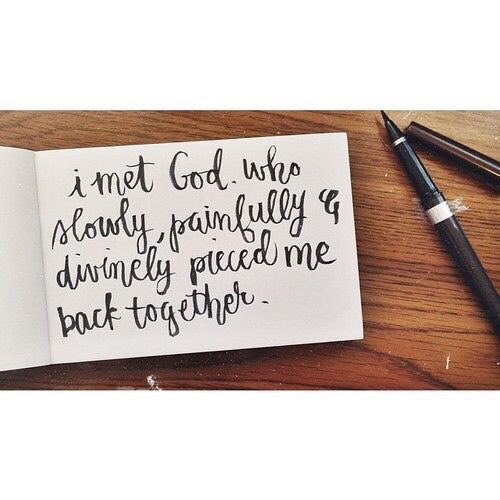 i met God. who
slowly, painfully &
divinely pieced me
back together.